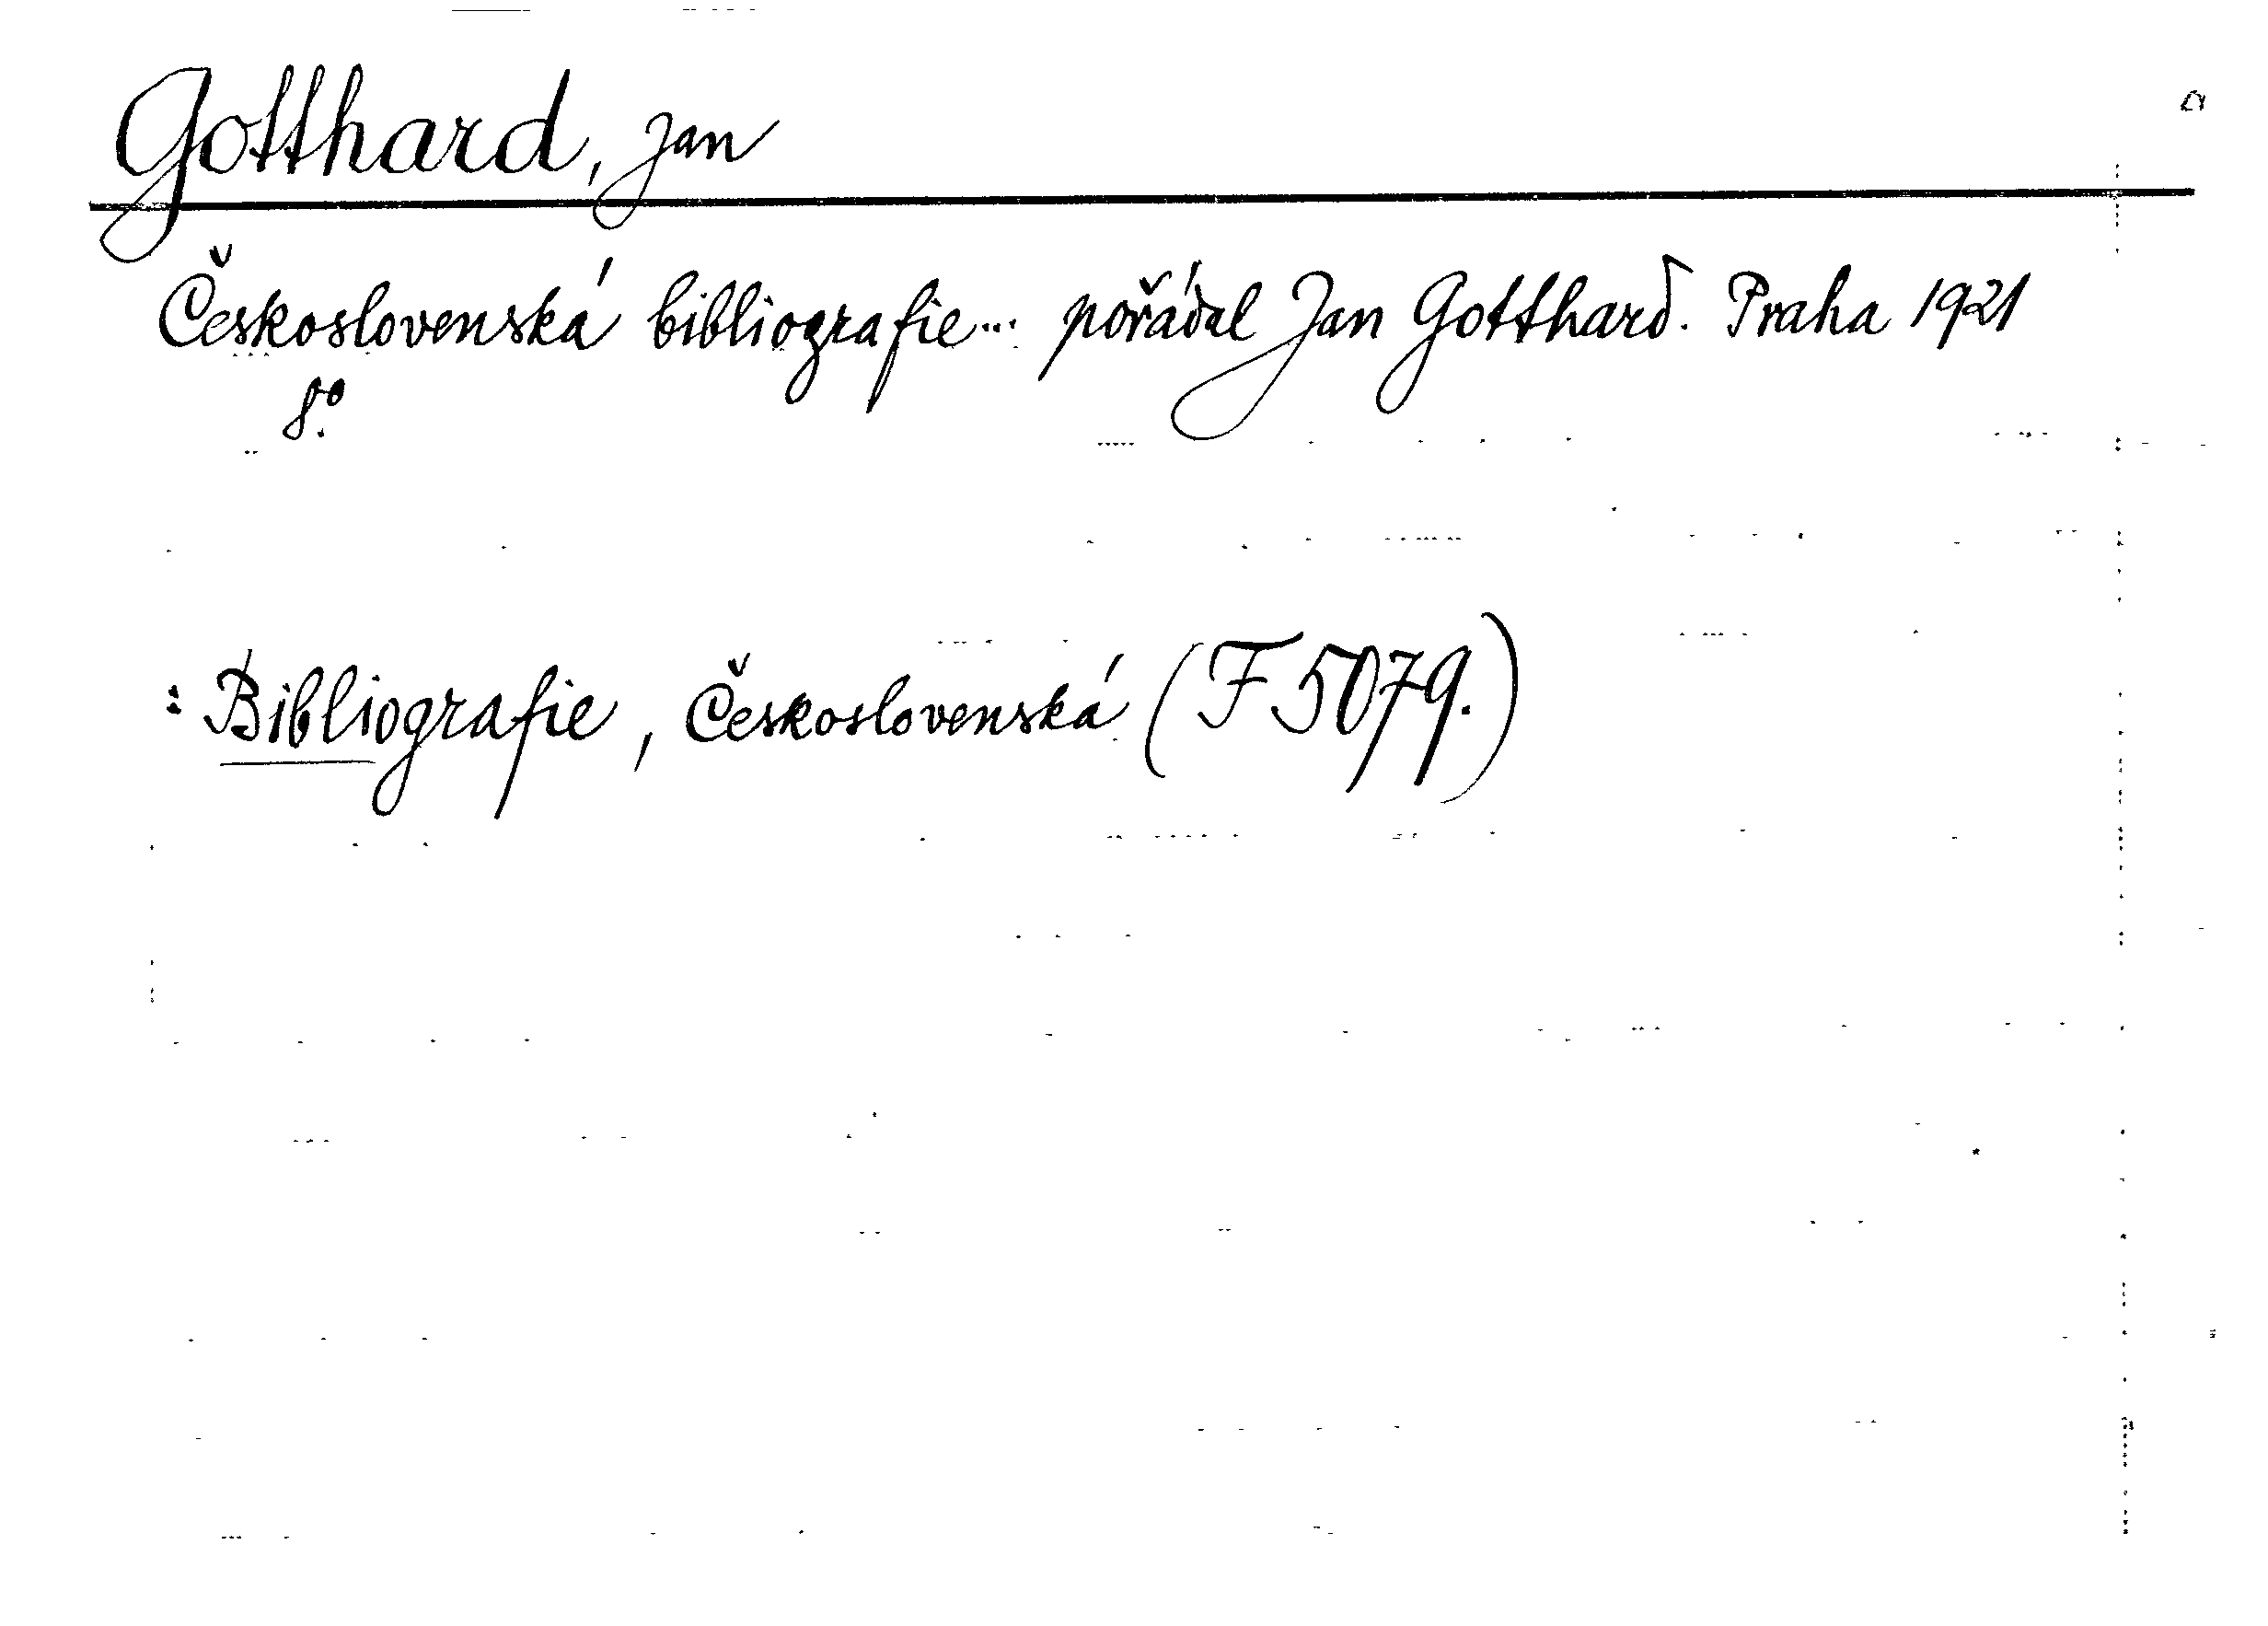 Gotthard, Jan
Československá bibliografie... pořádal Jan Gotthard. Praha 1921
8°.
: Bibliografie, Československá (F 5079.)